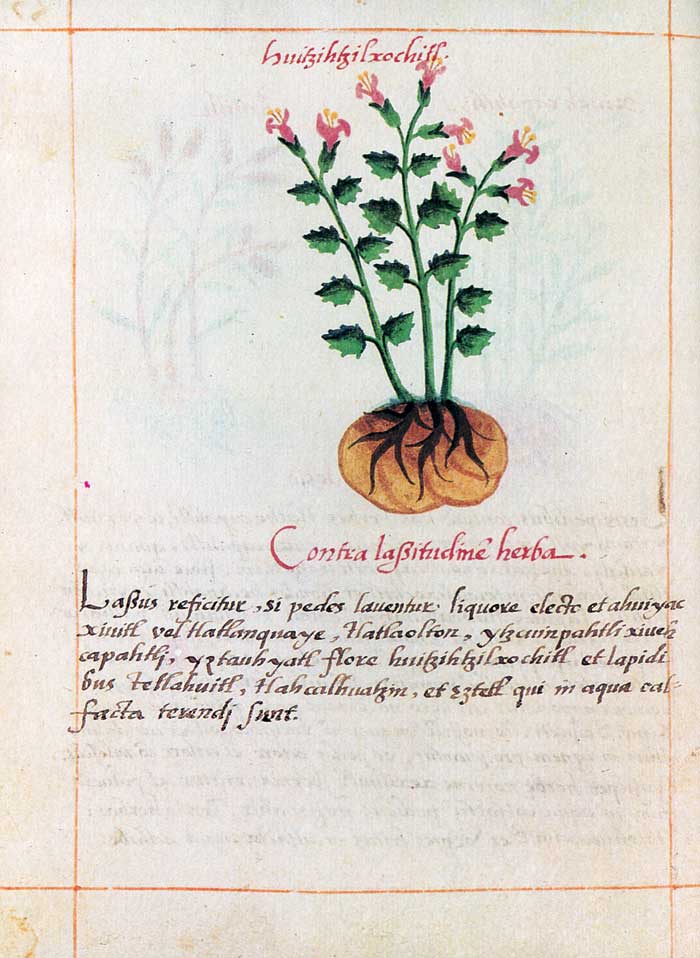 huitzihtzilxochitl.
Contra laßitudinē herba.
Laßus reficitur, si pedes laventur liquore electo et ahuiyac
xiuitl vel tlatlanquaye, tlatlaolton, ytzcuinpahtli xiueh
capahtli, yztauhyatl flore huitzihtzilxochitl et lapidi
bus tetlahuitl, tlahcalhuatzin, et eztetl qui in aqua cal-
facta terendj sunt.